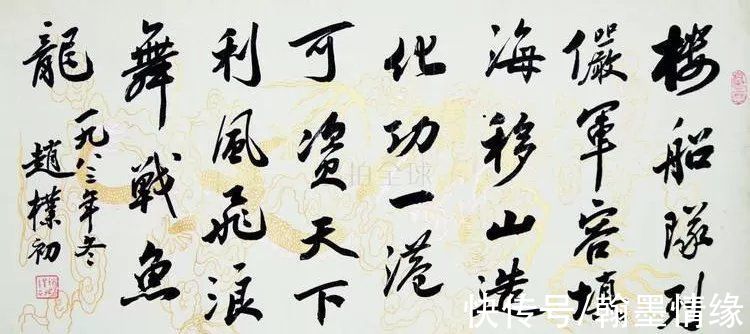 楼船隊列
儼軍容填
海移山造
化功一港
可資天下
利風飛浪
舞戰魚
龍
一九八三年冬
趙樸初
拍全球
快传号/翰墨情缘